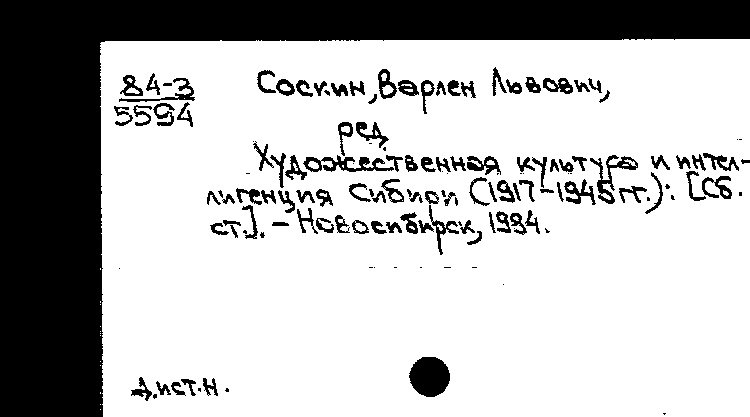 84-3
5594
Соскин, Варлен Львович,
ред.
Художественная культура и интел-
лигенция Сибири (1917-1945 гг.): [Сб.
ст.]. - Новосибирск, 1984.
д.ист.н.